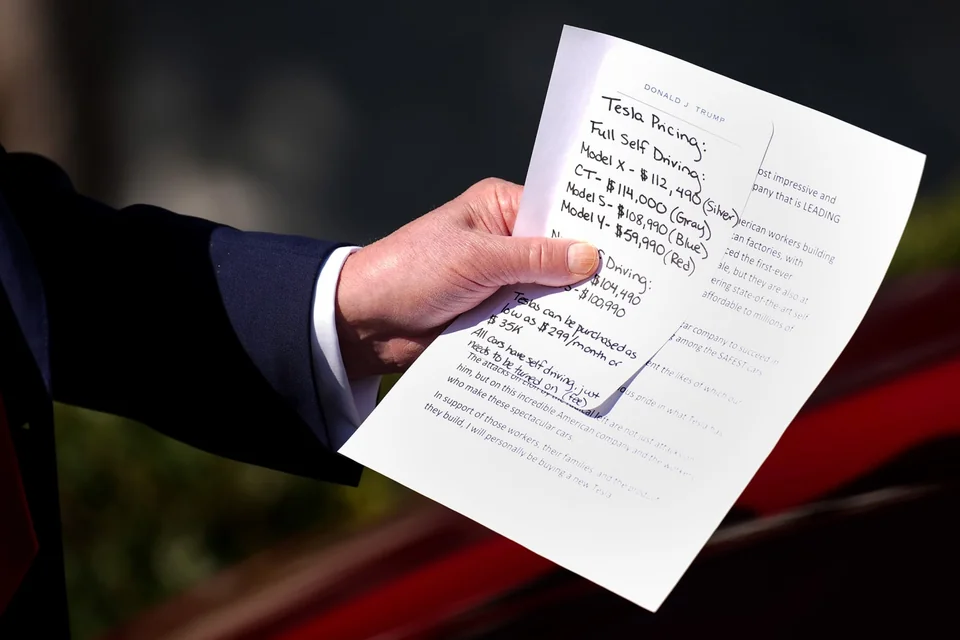 DONALD J TRUMP
Tesla Pricing:
Full Self Driving:
Model X - $112,490 (Silver)
CT - $114,000 (Gray)
Model S - $108,990 (Blue)
Model Y - $59,990 (Red)
Driving:
$104,490
- $100,990
Teslas can be purchased as
low as $299/month or
$35K
All cars have self driving, just
needs to be turned on (fee)
ost impressive and
pany that is LEADING
erican workers building
can factories, with
ced the first-ever
ale, but they are also at
ering state-of-the-art self
affordable to millions of
car company to succeed in
among the SAFEST cars
ent the likes of which our
ous pride in what Tesla has
The attacks on
al left are not just attacks on
him, but on this incredible American company and the workers
who make these spectacular cars.
In support of those workers, their families, and the product
they build, I will personally be buying a new Tesla